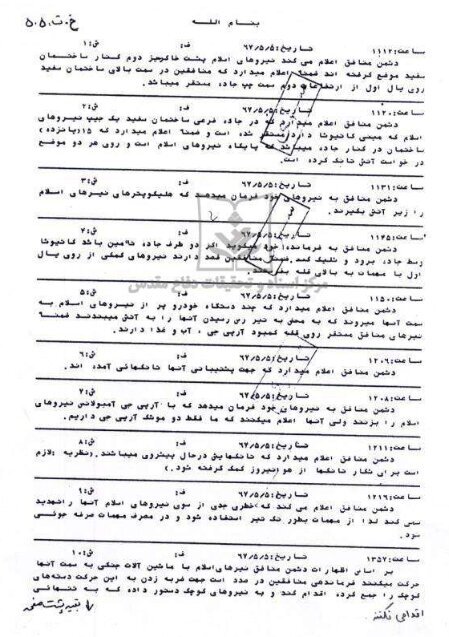 بنام الله
خ.ت.۵۰۵
ساعت:۱۱۱۲ تاریخ:۶۷/۵/۵ ف: ق:۱
دشمن منافق اعلام می کند نیروهای اسلام پشت خاکریز دوم کنار ساختمان
سفید موضع گرفته اند ضمنا" اعلام میدارد که منافقین در سمت بالای ساختمان سفید
روی یال اول از ارتفاعات دوم سمت چپ جاده مستقر میباشد.
ساعت:۱۱۲۰ تاریخ:۶۷/۵/۵ ف: ق:۲
دشمن منافق اعلام میدارد که در جاده فرعی ساختمان سفید یک جیپ نیروهای
اسلام که مینی کاتیوشا دارد مستقر شده است و ضمنا" اعلام میدارد که ۱۵(پانزده)
ساختمان در کنار جاده میباشد که پایگاه نیروهای اسلام است و روی هر دو موضع
در خواست آتش تانک کرده است.
ساعت:۱۱۳۱ تاریخ:۶۷/۵/۵ ف: ق:۳
دشمن منافق به نیروهای خود فرمان میدهد که هلیکوپترهای نیرهای اسلام
را زیر آتش بگیرند.
ساعت:۱۱۴۵ تاریخ:۶۷/۵/۵ ف: ق:۴
دشمن منافق به فرمانده خود میگوید اگر دو طرف جاده تامین باشد کاتیوشا
وسط جاده برود و شلیک کند ضمنا" منافقین قصد دارند نیروهای کمکی از روی یال
اول با مهمات به بالای قله بفرستند.
مرکز اسناد و تحقیقات دفاع مقدس
ساعت:۱۱۵۰ تاریخ:۶۷/۵/۵ ف: ق:۵
دشمن منافق اعلام میدارد که چند دستگاه خودرو پر از نیروهای اسلام به
سمت آنها میروند که به محض به تیر رس رسیدن آنها را به آتش میبندند ضمنا"
نیرهای منافق مستقر روی قله کمبود آرپی جی ، آب و غذا دارند.
ساعت:۱۲۰۶ تاریخ:۶۷/۵/۵ ف: ق:۶
دشمن منافق اعلام میدارد که جهت پشتیبانی آنها تانکهائی آمده اند.
ساعت:۱۲۰۸ تاریخ:۶۷/۵/۵ ف: ق:۷
دشمن منافق به نیروهای خود فرمان میدهد که با آرپی جی آمبولانس نیروهای
اسلام را بزنند ولی آنها اعلام میکنند که ما فقط دو موشک آرپی جی داریم.
ساعت:۱۲۱۱ تاریخ:۶۷/۵/۵ ف: ق:۸
دشمن منافق اعلام میدارد که تانکهایش درحال پیشروی میباشند.(نظریه :لازم
است برای شکار تانکها از هوانیروز کمک گرفته شود.)
ساعت:۱۲۱۶ تاریخ:۶۷/۵/۵ ف: ق:۹
دشمن منافق اعلام می کند که خطری جدی از سوی نیروهای اسلام آنها راتهدید
نمی کند لذا از مهمات بطور تک تیر استفاده شود و در مصرف مهمات صرفه جوئی
شود.
ساعت:۱۳۵۷ تاریخ:۶۷/۵/۵ ف: ق:۱۰
بر اساس اظهارات دشمن منافق نیرهای اسلام با ماشین آلات جنگی به سمت آنها
حرکت میکنند فرماندهی منافقین در صدد است جهت ضربه زدن به این حرکت دسته‌های
کوچک را جمع کرده اقدام کند و به نیروهای کوچک دستور داده که به تنهائی
اقدامی نکنند.
بقیه پشت صفحه